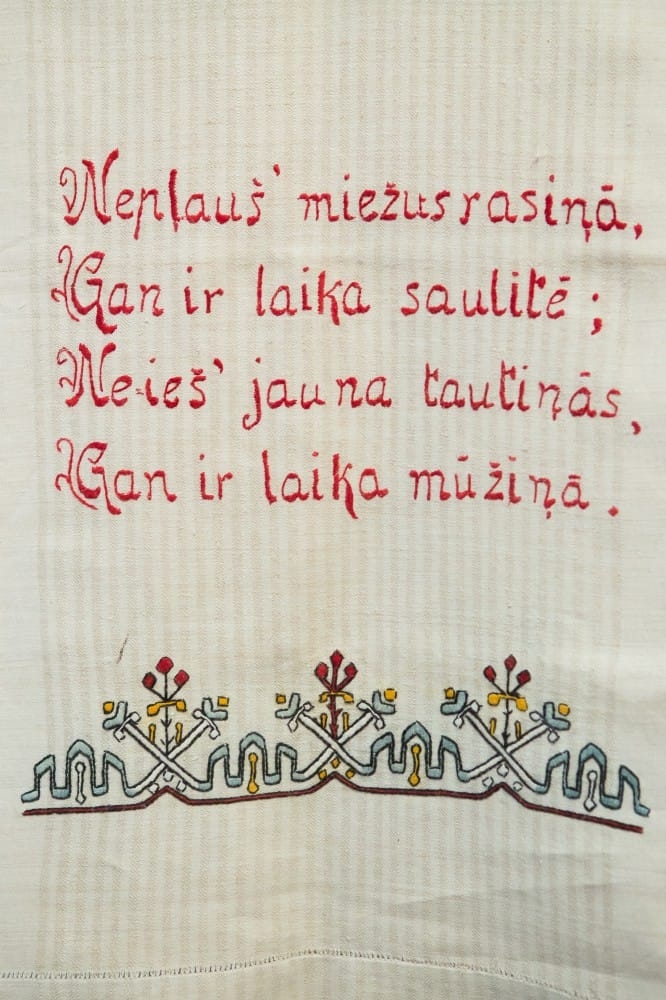 Nepļauš' miežus rasiņā,
Gan ir laika saulitē;
Ne-ieš' jauna tautiņās,
Gan ir laika mūžiņā.